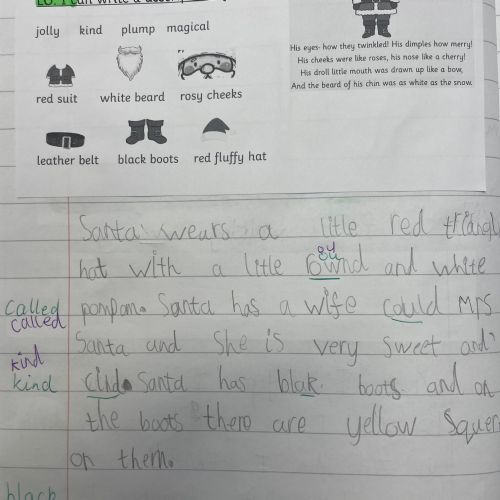 LO: I can write a
jolly kind plump magical
red suit white beard rosy cheeks
leather belt black boots red fluffy hat
His eyes- how they twinkled! His dimples how merry!
His cheeks were like roses, his nose like a cherry!
His droll little mouth was drawn up like a bow,
And the beard of his chin was as white as the snow.
Santa wears a little red triangl
gu
hat with a little rownd and white
called pompom. Santa has a wife could Mrs
called
Santa and She is very sweet and
kind
kind clind. Santa has blak boots and on
the boots there are yellow Squer
on them.
black